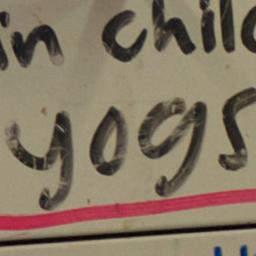 in chil
yogs